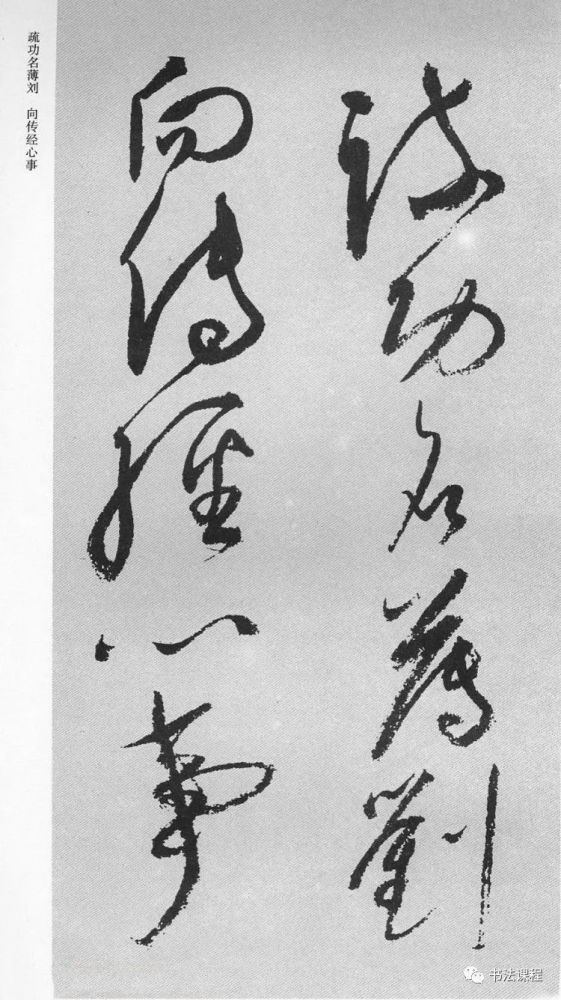 疏功名薄劉
向傳經心事
疏功名薄刘 向传经心事
书法课程